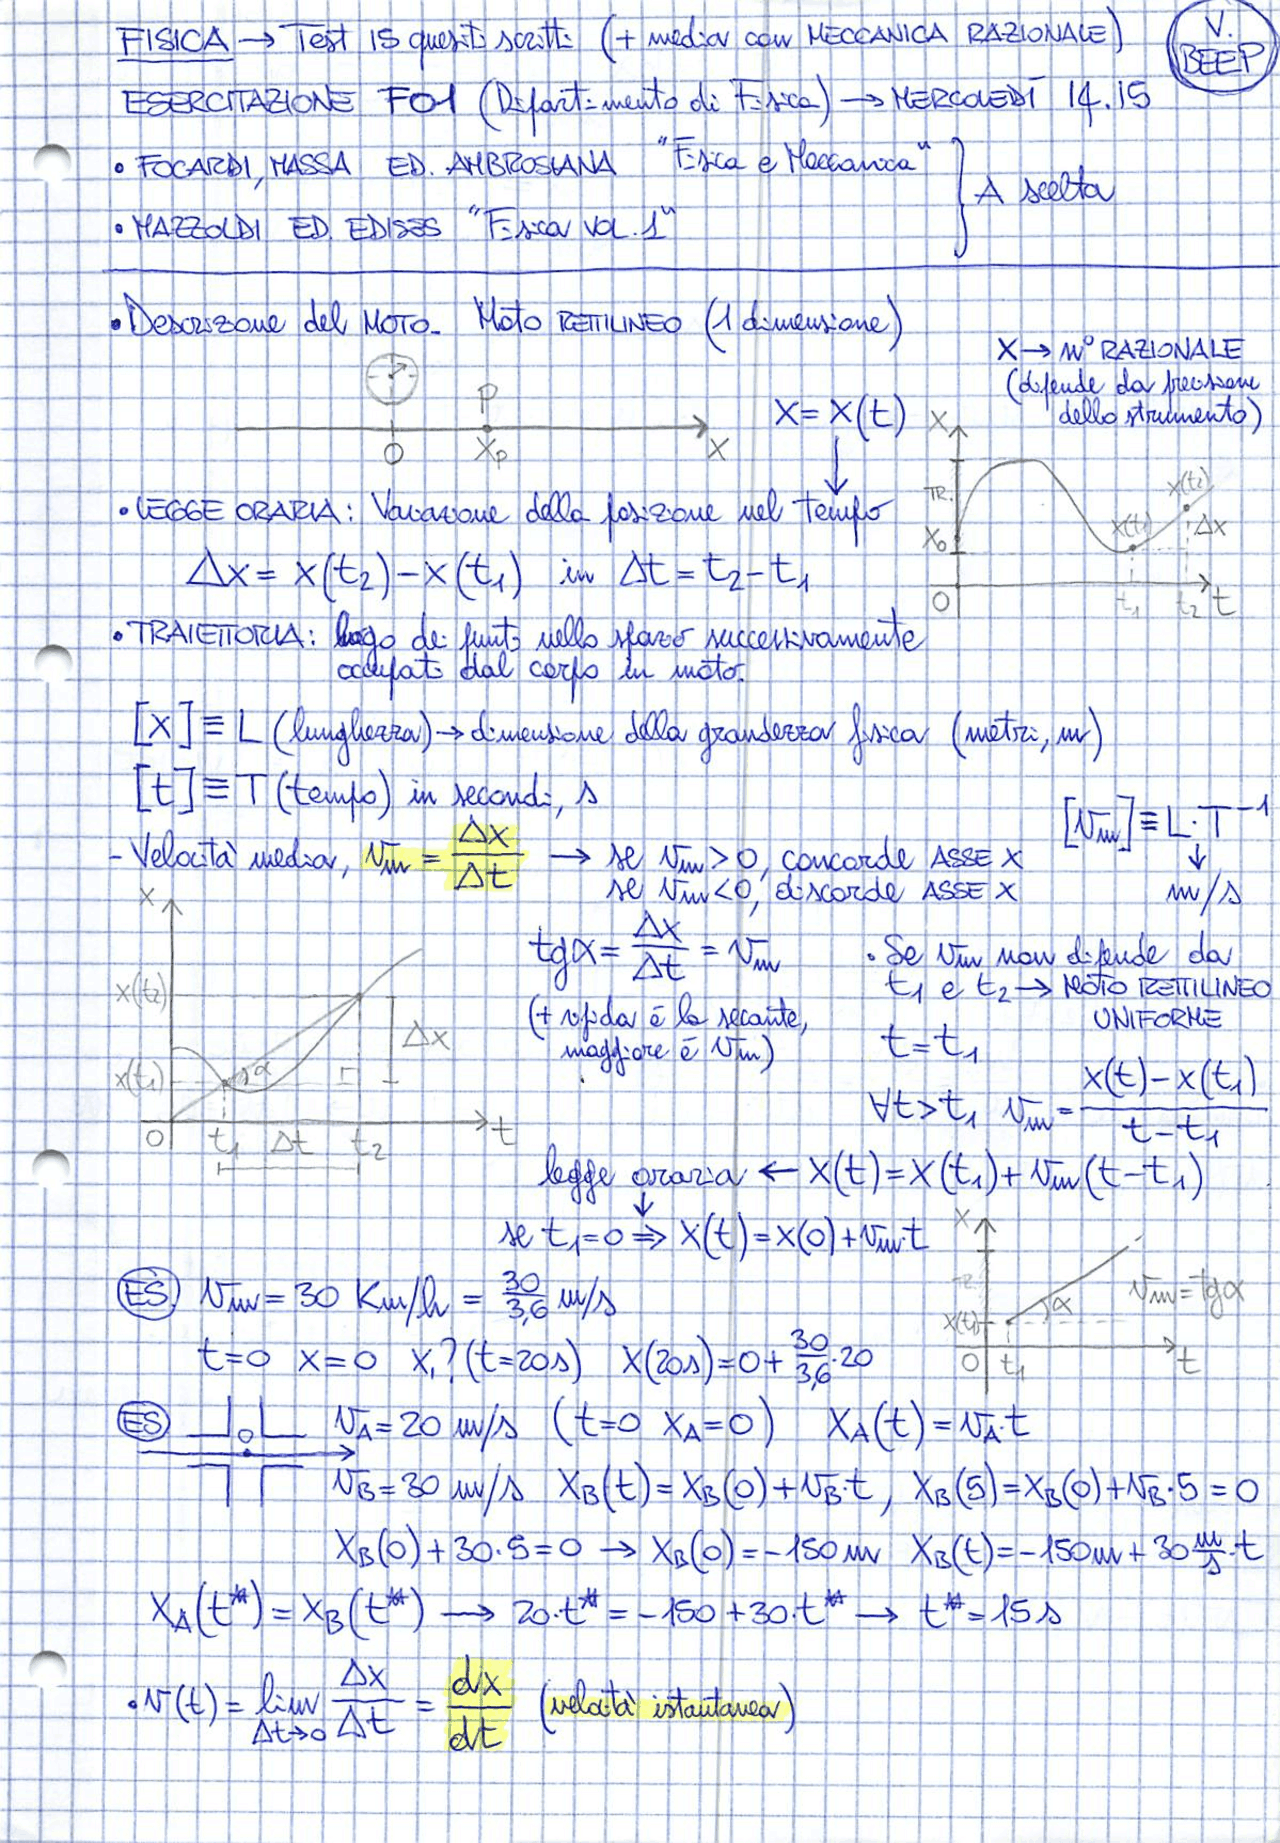 FISICA → Test 15 quesiti scritti (+ media con MECCANICA RAZIONALE)
V. BEEP
ESERCITAZIONE F01 (Dipartimento di Fisica) → MERCOLEDÌ 14.15
• FOCARDI, MASSA ED. AMBROSIANA "Fisica e Meccanica"
• MAZZOLDI ED. EDISES "Fisica VOL. 1"
} A scelta
• Descrizione del MOTO. Moto RETTILINEO (1 dimensione)
X → n° RAZIONALE
(dipende da precisione
dello strumento)
P
O Xp X
X = X(t)
X
TR.
X0
O
x(t1)
x(t2)
Δx
t1 t2 t
• LEGGE ORARIA: Variazione della posizione nel tempo
Δx = x(t2) - x(t1) in Δt = t2 - t1
• TRAIETTORIA: luogo dei punti nello spazio successivamente
occupati dal corpo in moto.
[x] ≡ L (lunghezza) → dimensione della grandezza fisica (metri, m)
[t] ≡ T (tempo) in secondi, s
[vm] ≡ L·T⁻¹
↓
m/s
- Velocità media, vm = Δx/Δt → se vm > 0, concorde ASSE X
se vm < 0, discorde ASSE X
x
x(t2)
x(t1)
α
Δx
O t1 Δt t2 t
tgα = Δx/Δt = vm
(+ ripida è la secante,
maggiore è vm)
• Se vm non dipende da
t1 e t2 → MOTO RETTILINEO
UNIFORME
t = t1
∀t > t1 vm = (x(t) - x(t1))/(t - t1)
legge oraria ← x(t) = x(t1) + vm(t - t1)
↓
se t1 = 0 ⇒ x(t) = x(0) + vm·t
X
TR.
x(t1)
α
vm = tgα
O t1 t
ES. vm = 30 Km/h = 30/3,6 m/s
t=0 x=0 x,? (t=20s) x(20s) = 0 + 30/3,6·20
ES
O
vA = 20 m/s (t=0 xA=0) xA(t) = vA·t
vB = 30 m/s xB(t) = xB(0) + vB·t, xB(5) = xB(0) + vB·5 = 0
xB(0) + 30·5 = 0 → xB(0) = -150 m xB(t) = -150m + 30 m/s·t
xA(t*) = xB(t*) → 20·t* = -150 + 30·t* → t* = 15 s
• v(t) = lim Δt→0 Δx/Δt = dx/dt (velocità istantanea)